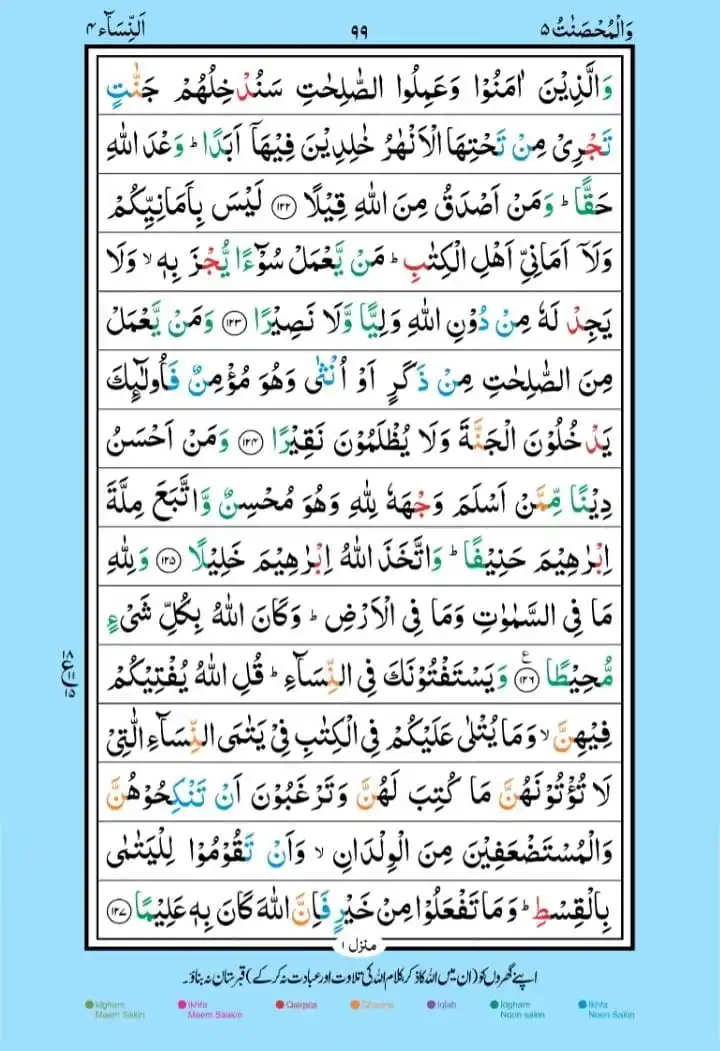 وَالْمُحْصَنٰتُ ۵ ۹۹ اَلنِّسَآء ۴
وَالَّذِيْنَ اٰمَنُوْا وَعَمِلُوا الصّٰلِحٰتِ سَنُدْخِلُهُمْ جَنّٰتٍ
تَجْرِيْ مِنْ تَحْتِهَا الْاَنْهٰرُ خٰلِدِيْنَ فِيْهَاۤ اَبَدًا ؕ وَعْدَ اللّٰهِ
حَقًّا ؕ وَمَنْ اَصْدَقُ مِنَ اللّٰهِ قِيْلًا ﴿۱۲۲﴾ لَيْسَ بِاَمَانِيِّكُمْ
وَلَاۤ اَمَانِيِّ اَهْلِ الْكِتٰبِ ؕ مَنْ يَّعْمَلْ سُوْٓءًا يُّجْزَ بِهٖ ۙ وَلَا
يَجِدْ لَهٗ مِنْ دُوْنِ اللّٰهِ وَلِيًّا وَّلَا نَصِيْرًا ﴿۱۲۳﴾ وَمَنْ يَّعْمَلْ
مِنَ الصّٰلِحٰتِ مِنْ ذَكَرٍ اَوْ اُنْثٰى وَهُوَ مُؤْمِنٌ فَاُولٰٓئِكَ
يَدْخُلُوْنَ الْجَنَّةَ وَلَا يُظْلَمُوْنَ نَقِيْرًا ﴿۱۲۴﴾ وَمَنْ اَحْسَنُ
دِيْنًا مِّمَّنْ اَسْلَمَ وَجْهَهٗ لِلّٰهِ وَهُوَ مُحْسِنٌ وَّاتَّبَعَ مِلَّةَ
اِبْرٰهِيْمَ حَنِيْفًا ؕ وَاتَّخَذَ اللّٰهُ اِبْرٰهِيْمَ خَلِيْلًا ﴿۱۲۵﴾ وَلِلّٰهِ
مَا فِي السَّمٰوٰتِ وَمَا فِي الْاَرْضِ ؕ وَكَانَ اللّٰهُ بِكُلِّ شَيْءٍ
مُّحِيْطًا ﴿۱۲۶﴾ ع وَيَسْتَفْتُوْنَكَ فِي النِّسَآءِ ؕ قُلِ اللّٰهُ يُفْتِيْكُمْ
۱۸ ع ۱۱ ۱۵
فِيْهِنَّ ۙ وَمَا يُتْلٰى عَلَيْكُمْ فِي الْكِتٰبِ فِيْ يَتٰمَى النِّسَآءِ الّٰتِيْ
لَا تُؤْتُوْنَهُنَّ مَا كُتِبَ لَهُنَّ وَتَرْغَبُوْنَ اَنْ تَنْكِحُوْهُنَّ
وَالْمُسْتَضْعَفِيْنَ مِنَ الْوِلْدَانِ ۙ وَاَنْ تَقُوْمُوْا لِلْيَتٰمٰى
بِالْقِسْطِ ؕ وَمَا تَفْعَلُوْا مِنْ خَيْرٍ فَاِنَّ اللّٰهَ كَانَ بِهٖ عَلِيْمًا ﴿۱۲۷﴾
منزل ۱
اپنے گھروں کو (ان میں اللہ کا ذکر کلام اللہ کی تلاوت اور عبادت نہ کر کے) قبرستان نہ بناؤ۔
Idgham Meem Sakin
Ikhfa Meem Saakin
Qalqala
Ghunna
Iqlab
Idgham Noon sakin
Ikhfa Noon Sakin